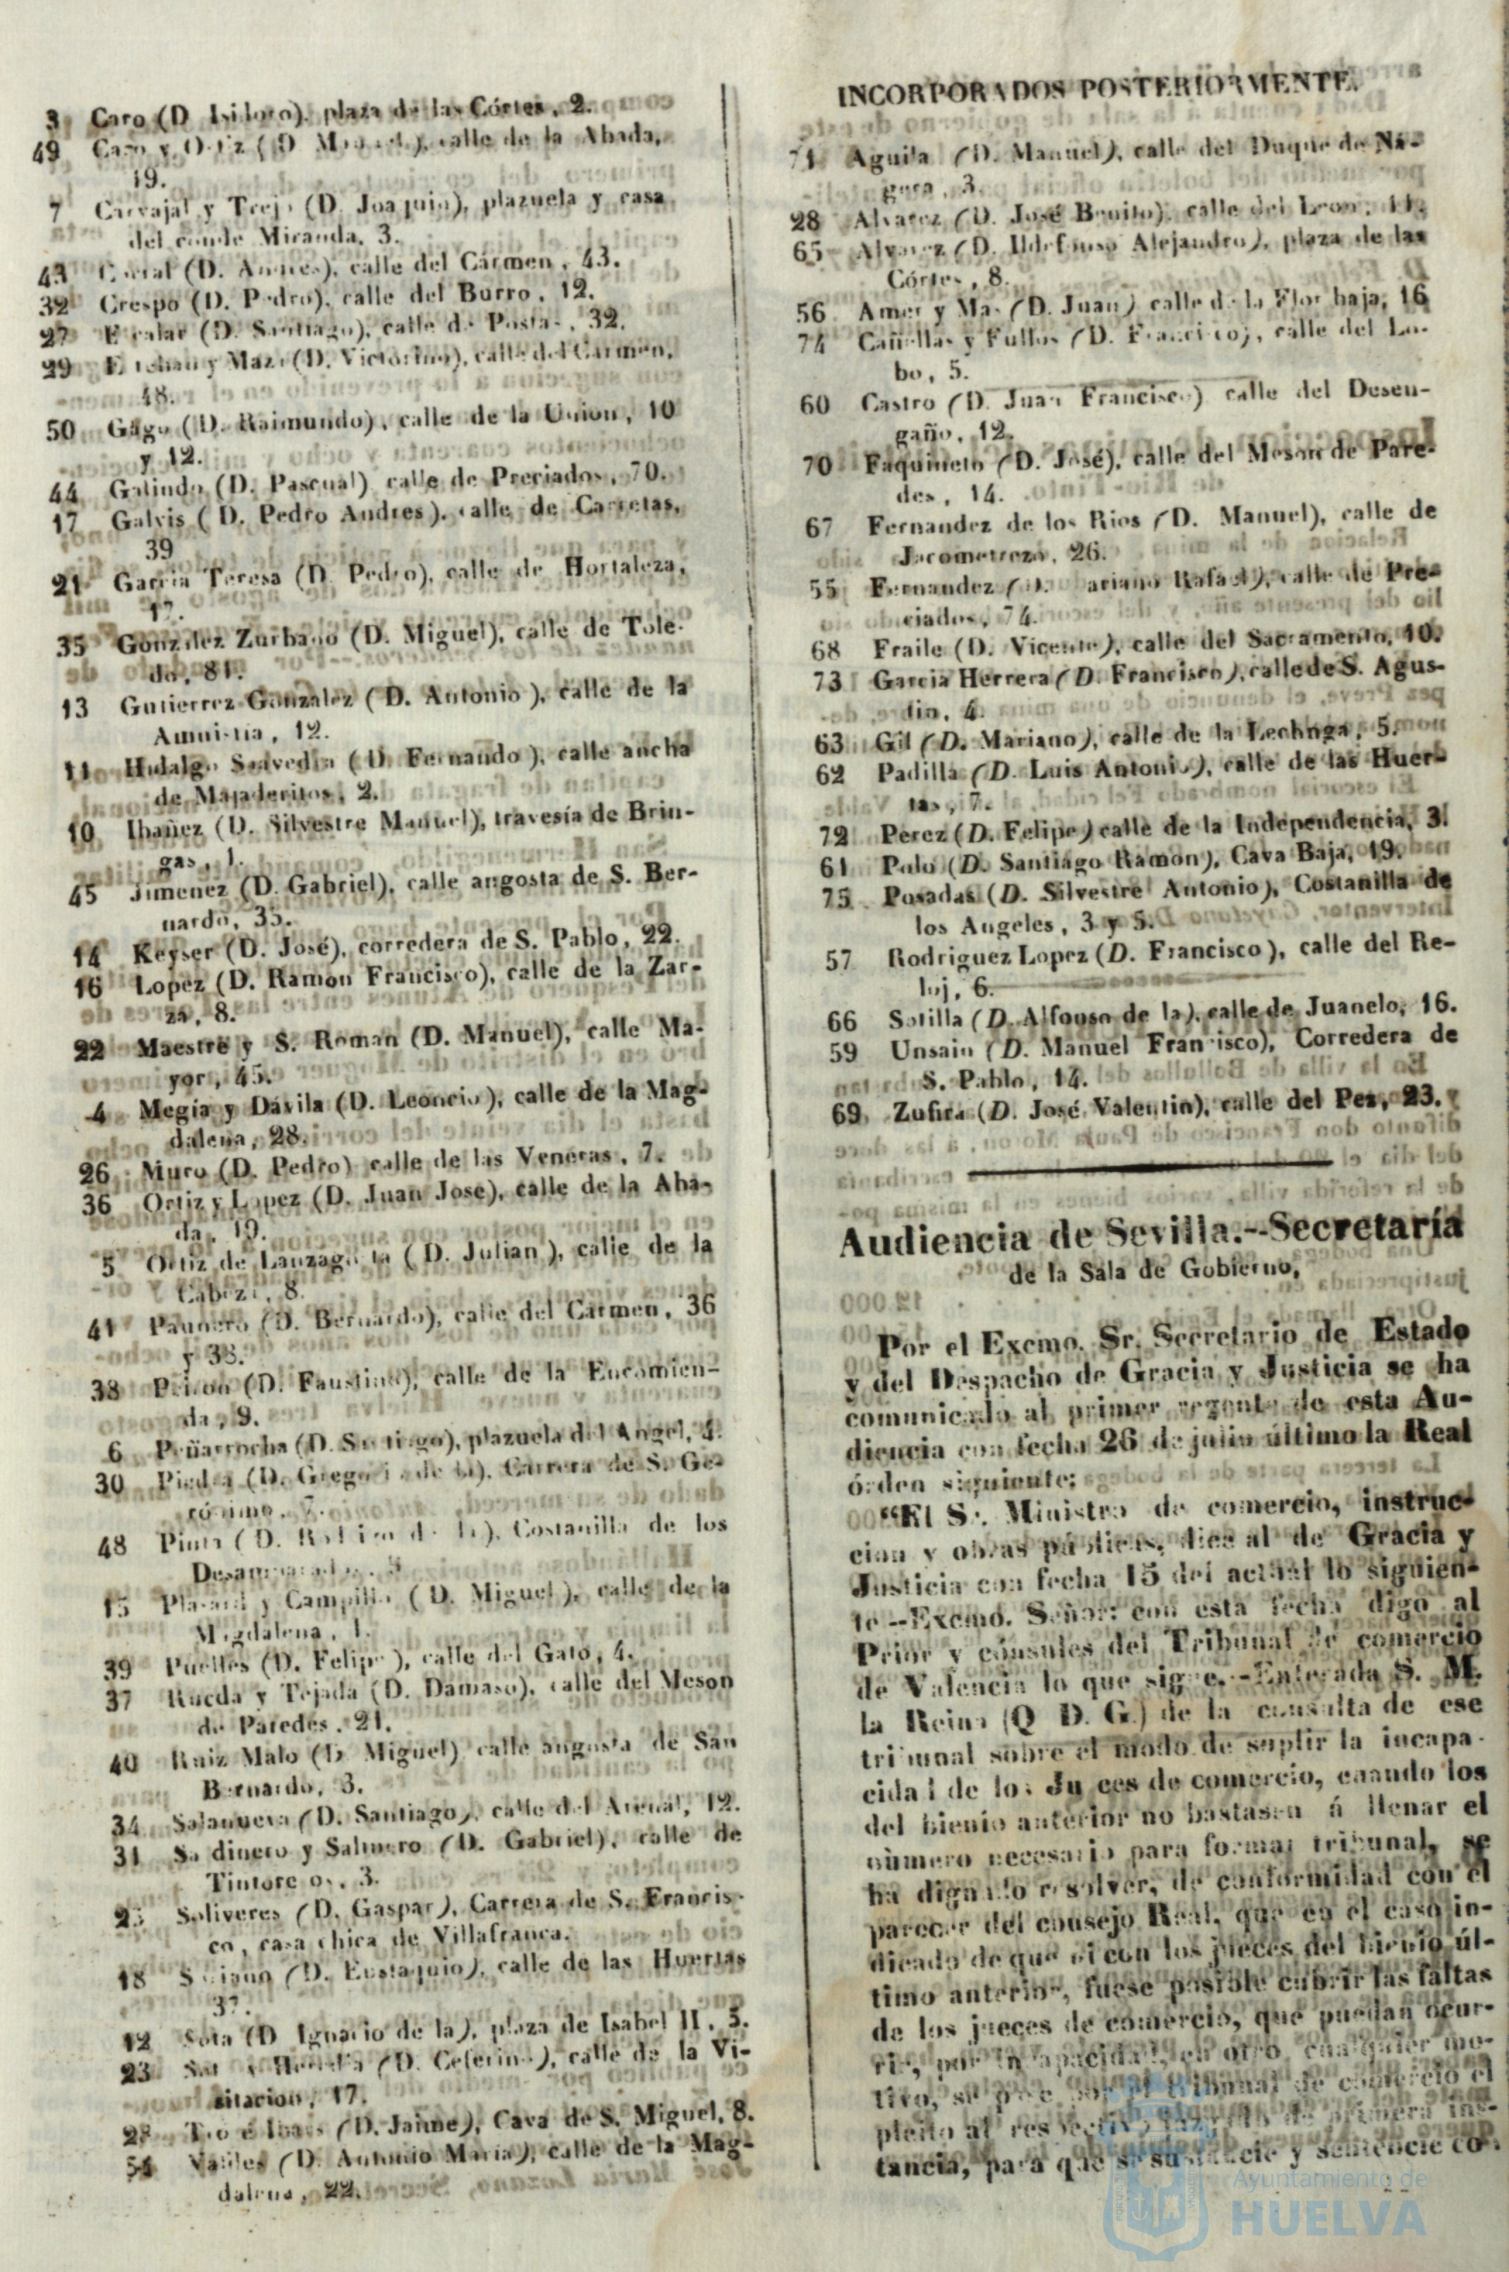 3 Caro (D. Isidoro), plaza de las Córtes, 2.
49 Caro y Ortiz (D. ), calle de la Abada,
19.
7 Carvajal y Trejo (D. Joaquin), plazuela y casa
del conde Miranda, 3.
43 Corral (D. Andres), calle del Cármen, 43.
32 Crespo (D. Pedro), calle del Burro, 12.
27 Escalar (D. Santiago), calle de Postas, 32.
29 Esteban y Mazo (D. Victorino), calle del Cármen,
48.
50 Gago (D. Raimundo), calle de la Union, 10
y 12.
44 Galindo (D. Pascual) calle de Preciados, 70.
17 Galvis (D. Pedro Andres), calle de Carretas,
39
21 Garcia Teresa (D. Pedro), calle de Hortaleza,
17.
35 Gonzalez Zurbano (D. Miguel), calle de Tole-
do, 81.
13 Gutierrez Gonzalez (D. Antonio), calle de la
Amnistía, 12.
11 Hidalgo Saavedra (D. Fernando), calle ancha
de Majaderitos, 2.
10 Ibañez (D. Silvestre Manuel), travesía de Brin-
gas, 1.
45 Jimenez (D. Gabriel), calle angosta de S. Ber-
nardo, 35.
14 Keyser (D. José), corredera de S. Pablo, 22.
16 Lopez (D. Ramon Francisco), calle de la Zar-
za, 8.
22 Maestre y S. Roman (D. Manuel), calle Ma-
yor, 45.
4 Megía y Dávila (D. Leoncio), calle de la Mag-
dalena, 28.
26 Muro (D. Pedro) calle de las Veneras, 7.
36 Ortiz y Lopez (D. Juan Jose), calle de la Aba-
da, 19.
5 Ortiz de Lanzagorta (D. Julian), calle de la
Cabeza, 8.
41 Paunero (D. Bernardo), calle del Cármen, 36
y 38.
38 (D. Faustino), calle de la Encomien-
da, 9.
6 Peñarrocha (D. Santiago), plazuela del Angel, 4.
30 Piedra (D. Gregorio de la), Carrera de S. Ge-
rónimo, 7.
48 Pinta (D. de la), Costanilla de los
Desamparados,
15 y Campillo (D. Miguel), calle de la
Magdalena, 1.
39 Puelles (D. Felipe), calle del Gato, 4.
37 Rueda y Tejada (D. Damaso), calle del Meson
de Paredes, 21.
40 Ruiz Malo (D. Miguel) calle angosta de San
Bernardo, 3.
34 Salanueva (D. Santiago), calle del Arenal, 12.
31 Sa dinero y Salinero (D. Gabriel), calle de
Tintore os, 3.
25 Soliveres (D. Gaspar), Carrera de S. Francis-
co, casa chica de Villafranca.
18 Soriano (D. Eustaquio), calle de las Huertas
37.
12 Sota (D. Ignacio de la), plaza de Isabel II, 5.
23 Heredia (D. Ceferino), calle de la Vi-
sitacion, 17.
(D. Jaime), Cava de S. Miguel, 8.
54 Valdes (D. Antonio Maria), calle de la Mag-
dalena, 22.
INCORPORADOS POSTERIORMENTE.
71 Aguila (D. Manuel), calle del Duque de Ná-
gera, 3.
28 Alvarez (D. José Benito), calle del Leon, 11.
65 Alvarez (D. Ildefonso Alejandro), plaza de las
Córtes, 8.
56 Amer y Mas (D. Juan) calle de la Flor baja, 16
74 Cañellas y Fullos (D. Francisco), calle del Lo-
bo, 5.
60 Castro (D. Juan Francisco) calle del Desen-
gaño, 12.
70 Faquineto (D. José), calle del Meson de Pare-
des, 14.
67 Fernandez de los Rios (D. Manuel), calle de
Jacometrezo, 26.
55 Fernandez (D. ariano Rafael), calle de Pre-
ciados, 74.
68 Fraile (D. Vicente), calle del Sacramento, 10.
73 Garcia Herrera (D. Francisco), calle de S. Agus-
tin, 4.
63 Gil (D. Mariano), calle de la Lechuga, 5.
62 Padilla (D. Luis Antonio), calle de las Huer-
tas, 7.
72 Perez (D. Felipe) calle de la Independencia, 3.
61 Polo (D. Santiago Ramon), Cava Baja, 19.
75 Posadas (D. Silvestre Antonio), Costanilla de
los Angeles, 3 y 5.
57 Rodriguez Lopez (D. Francisco), calle del Re-
loj, 6.
66 Sotilla (D. Alfonso de la), calle de Juanelo, 16.
59 Unsain (D. Manuel Francisco), Corredera de
S. Pablo, 14.
69 Zufira (D. José Valentin), calle del Pez, 23.
Audiencia de Sevilla.--Secretaría
de la Sala de Gobierno,
Por el Excmo. Sr. Secretario de Estado
y del Despacho de Gracia y Justicia se ha
comunicado al primer regente de esta Au-
diencia con fecha 26 de julio último la Real
órden siguiente:
“El Sr. Ministro de comercio, instruc-
cion y obras públicas, dice al de Gracia y
Justicia con fecha 15 del actual lo siguien-
te--Excmo. Señor: con esta fecha digo al
Prior y cónsules del Tribunal de comercio
de Valencia lo que sigue.--Enterada S. M.
la Reina (Q D. G.) de la consulta de ese
tribunal sobre el modo de suplir la incapa-
cidad de los Jueces de comercio, cuando los
del bienio anterior no bastasen á llenar el
número necesario para formar tribunal, se
ha dignado resolver, de conformidad con el
parecer del consejo Real, que en el caso in-
dicado de que ni con los jueces del bienio úl-
timo anterior, fuese posible cubrir las faltas
de los jueces de comercio, que puedan ocur-
rir, por incapacidad, en otro cualquier mo-
tivo, se pase por el tribunal de comercio el
pleito al respectivo juzgado de primera ins-
tancia, para que se sustancie y sentencie co
Ayuntamiento de
HUELVA